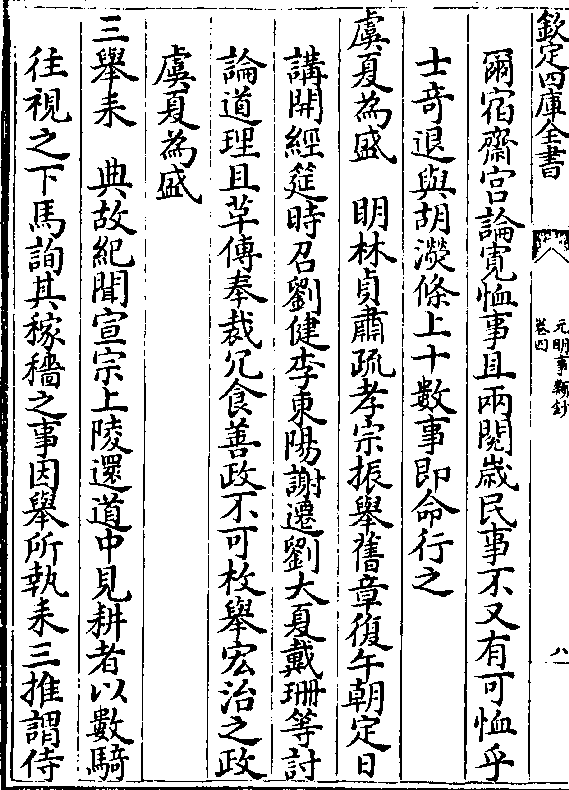 欽定四庫全書
元明事類鈔
卷四
八
爾宿齋宫論寛恤事且兩閱歳民事不又有可恤乎
士竒退與胡濙條上十數事即命行之
虞夏為盛　明林貞肅疏孝宗振舉舊章復午朝定日
講開經筵時召劉健李東陽謝遷劉大夏戴珊等討
論道理且革傳奉裁冗食善政不可枚舉宏治之政
虞夏為盛
三舉耒　典故紀聞宣宗上陵還道中見耕者以數騎
往視之下馬詢其稼穡之事因舉所執耒三推謂侍